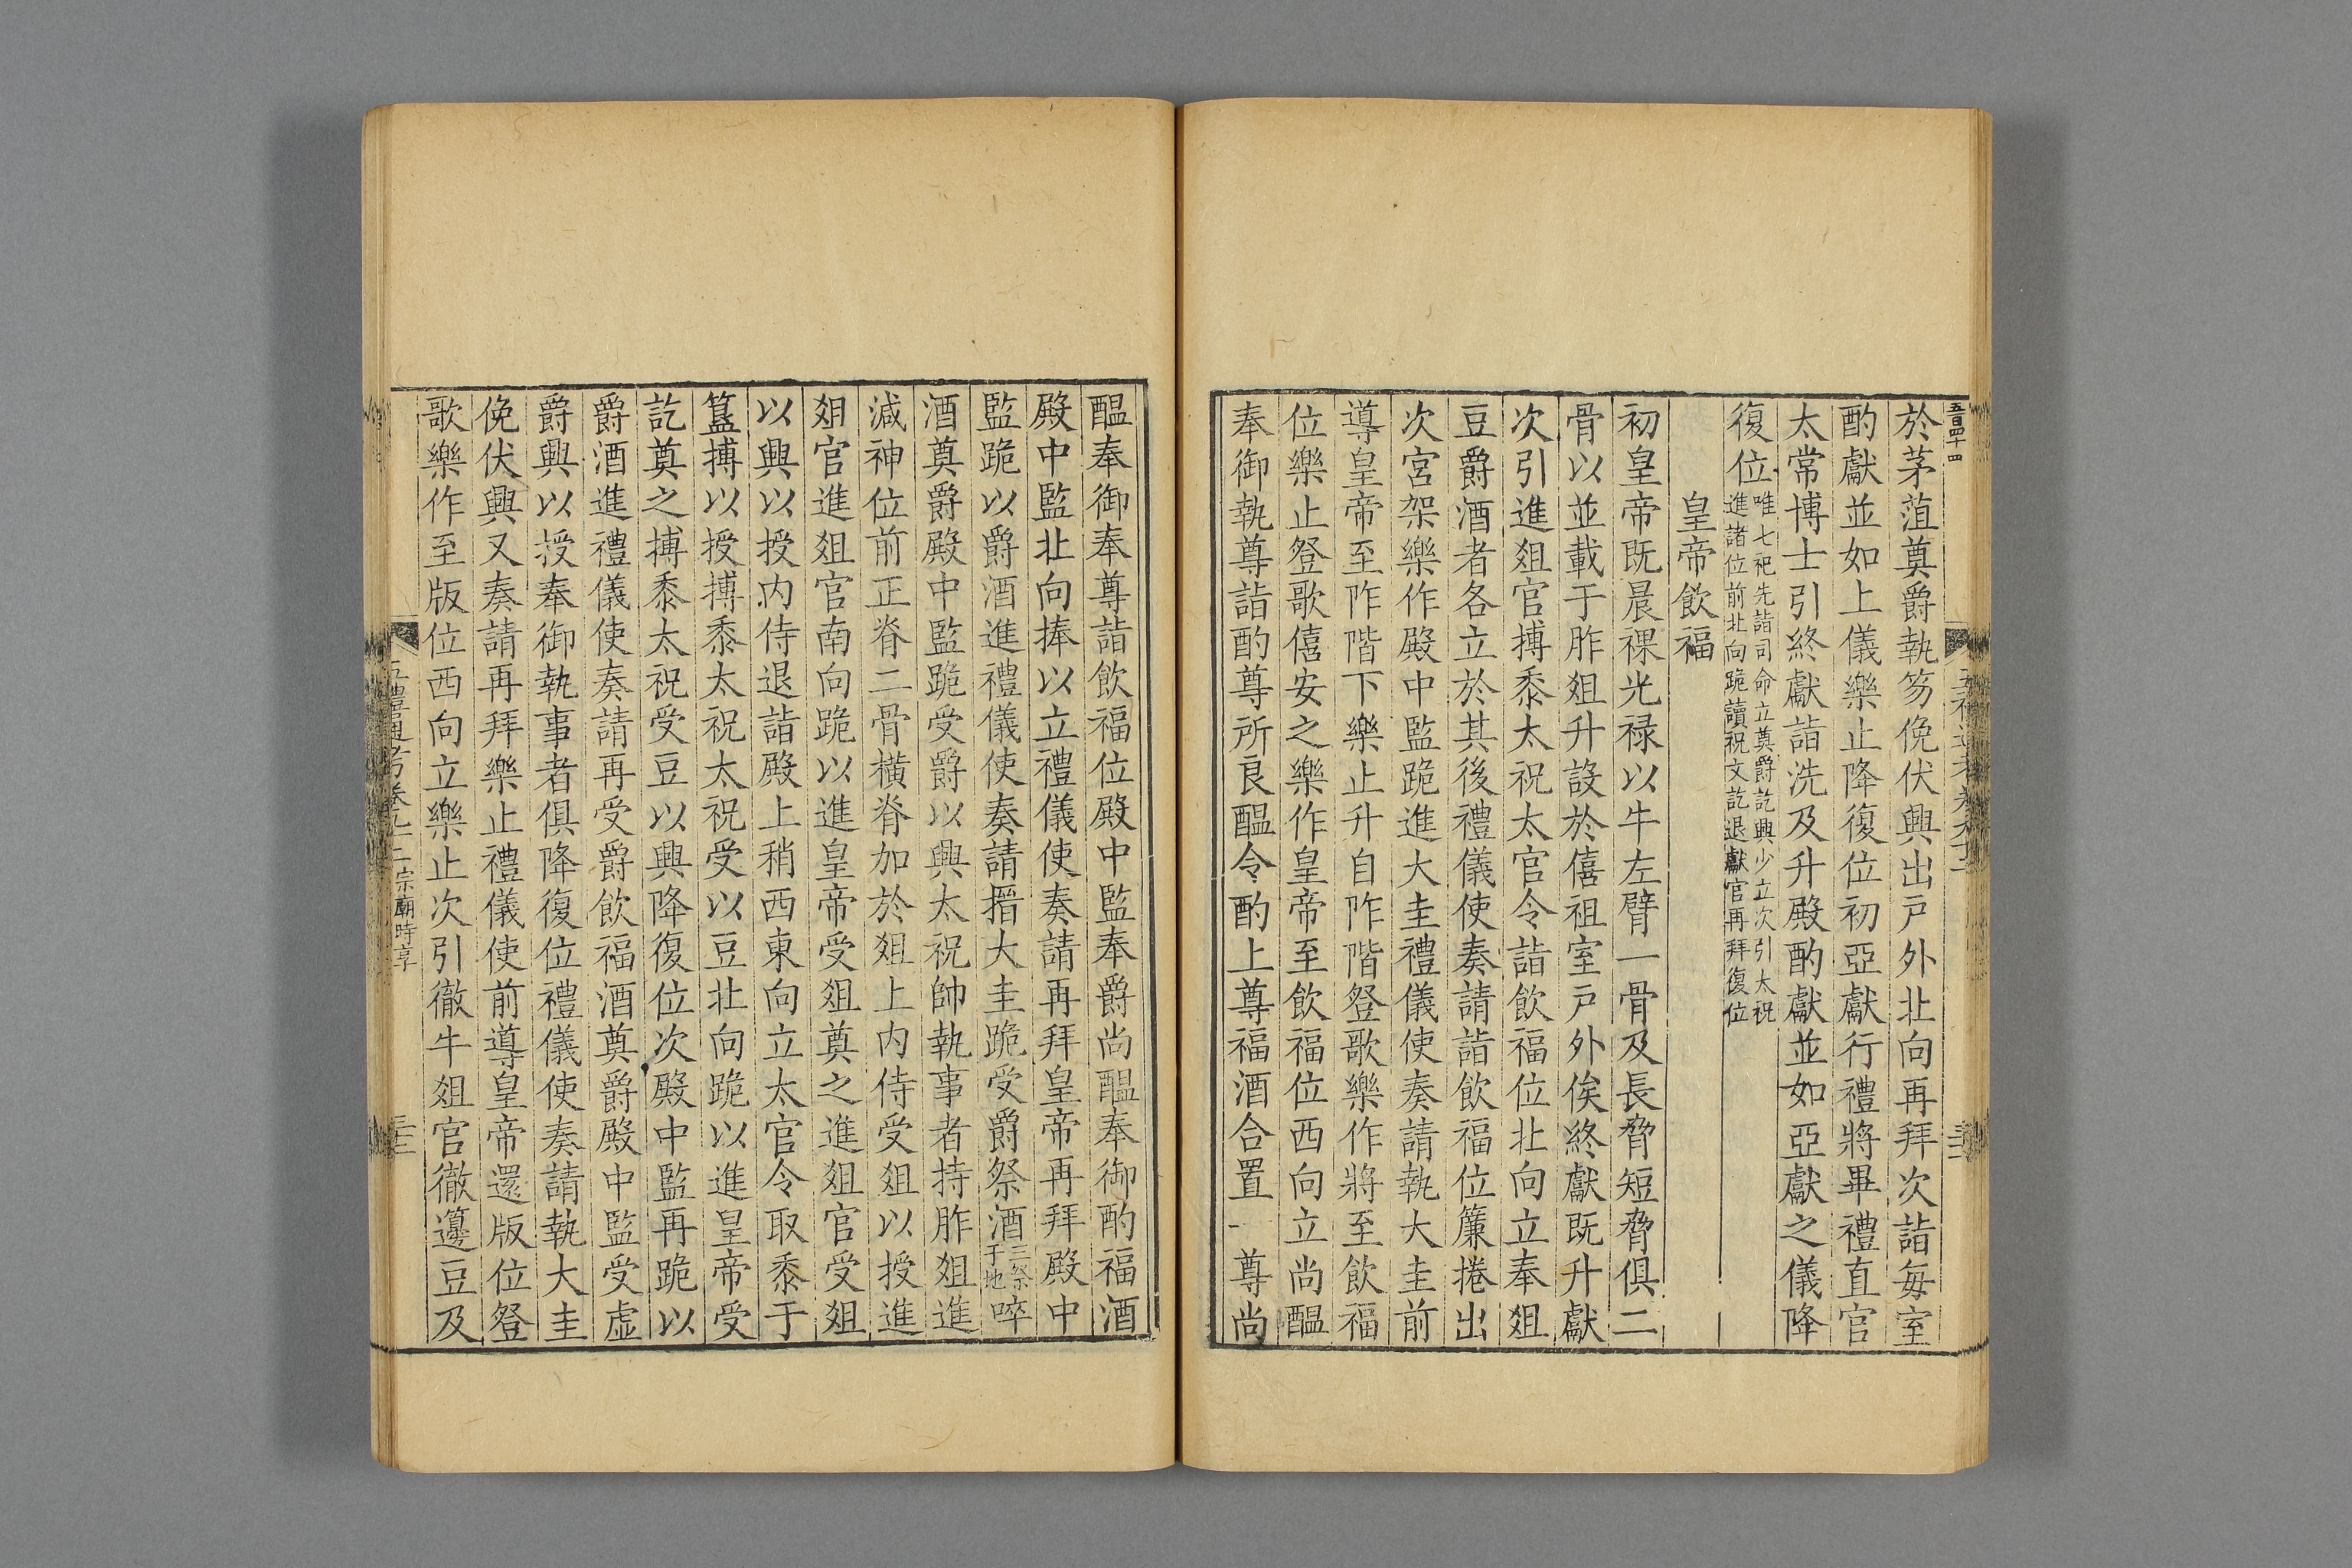 五百四十四
於茅蒩奠爵執笏俛伏興出戶外北向再拜次詣每室
酌獻並如上儀樂止降復位初亞獻行禮將畢禮直官
太常博士引終獻詣洗及升殿酌獻並如亞獻之儀降
復位唯七祀先詣司命立奠爵訖興少立次引太祝進諸位前北向跪讀祝文訖退獻官再拜復位
皇帝飲福
初皇帝既晨祼光禄以牛左臂一骨及長脅短脅俱二
骨以並載于胙俎升設於僖祖室戶外俟終獻既升獻
次引進俎官摶黍太祝太官令詣飲福位北向立奉俎
豆爵酒者各立於其後禮儀使奏請詣飲福位簾捲出
次宮架樂作殿中監跪進大圭禮儀使奏請執大圭前
導皇帝至阼階下樂止升自阼階登歌樂作將至飲福
位樂止登歌僖安之樂作皇帝至飲福位西向立尚醖
奉御執尊詣酌尊所良醖令酌上尊福酒合置一尊尚
醖奉御奉尊詣飲福位殿中監奉爵尚醖奉御酌福酒
殿中監北向捧以立禮儀使奏請再拜皇帝再拜殿中
監跪以爵酒進禮儀使奏請搢大圭跪受爵祭酒三祭于地啐
酒奠爵殿中監跪受爵以興太祝帥執事者持胙俎進
減神位前正脊二骨橫脊加於俎上内侍受俎以授進
俎官進俎官南向跪以進皇帝受俎奠之進俎官受俎
以興以授内侍退詣殿上稍西東向立太官令取黍于
簋摶以授摶黍太祝太祝受以豆北向跪以進皇帝受
訖奠之摶黍太祝受豆以興降復位次殿中監再跪以
爵酒進禮儀使奏請再受爵飲福酒奠爵殿中監受虚
爵興以授奉御執事者俱降復位禮儀使奏請執大圭
俛伏興又奏請再拜樂止禮儀使前導皇帝還版位登
歌樂作至版位西向立樂止次引徹牛俎官徹籩豆及
宗廟時享